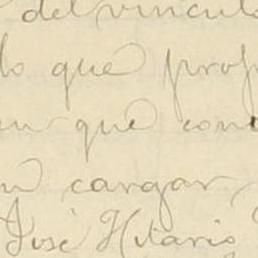 del vinculo
lo que prof
en que con
n cargar
José Hilario